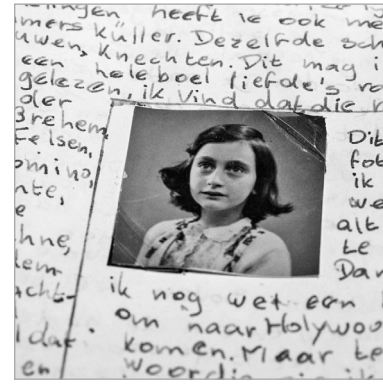 lingen heeft ie ook me
mers Küller. Dezelfde sch
uwen, Knechten. Dit mag i
een heleboel liefde's ro
gelezen, ik vind dat die r
der
Brehem
Felsen,
omino,
nte,
e
hne,
lem
acht-
l dat
en
Dit
fot
ik
we
alt
te
Dan
ik nog wel een
om naar Holywoo
komen. Maar te
woordig zie ik